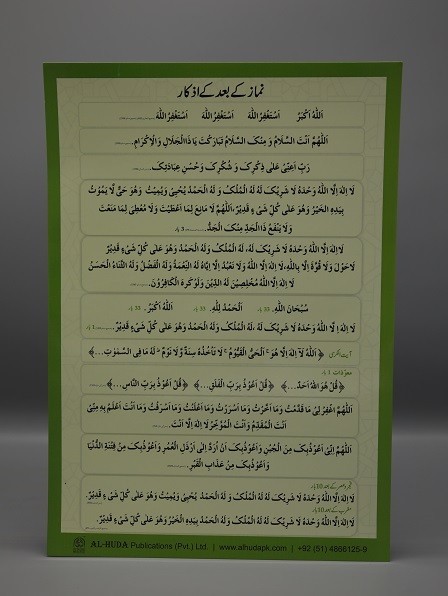 نماز کے بعد کے اذکار
اَللّٰهُ اَکْبَرُ اَسْتَغْفِرُ اللّٰهَ اَسْتَغْفِرُ اللّٰهَ اَسْتَغْفِرُ اللّٰهَ
اَللّٰهُمَّ اَنْتَ السَّلَامُ وَ مِنْکَ السَّلَامُ تَبَارَکْتَ یَا ذَا الْجَلَالِ وَ الْاِکْرَامِ.
رَبِّ اَعِنِّیْ عَلٰی ذِکْرِکَ وَ شُکْرِکَ وَ حُسْنِ عِبَادَتِکَ.
لَا اِلٰهَ اِلَّا اللّٰهُ وَحْدَهٗ لَا شَرِیْکَ لَهٗ لَهُ الْمُلْکُ وَ لَهُ الْحَمْدُ یُحْیِیْ وَیُمِیْتُ وَهُوَ حَیٌّ لَّا یَمُوْتُ
بِیَدِهِ الْخَیْرُ وَهُوَ عَلٰی کُلِّ شَیْءٍ قَدِیْرٌ، اَللّٰهُمَّ لَا مَانِعَ لِمَا اَعْطَیْتَ وَ لَا مُعْطِیَ لِمَا مَنَعْتَ
وَلَا یَنْفَعُ ذَا الْجَدِّ مِنْکَ الْجَدُّ. 3 بار
لَا اِلٰهَ اِلَّا اللّٰهُ وَحْدَهٗ لَا شَرِیْکَ لَهٗ، لَهُ الْمُلْکُ وَ لَهُ الْحَمْدُ وَهُوَ عَلٰی کُلِّ شَیْءٍ قَدِیْرٌ
لَا حَوْلَ وَلَا قُوَّةَ اِلَّا بِاللّٰهِ، لَا اِلٰهَ اِلَّا اللّٰهُ وَلَا نَعْبُدُ اِلَّا اِیَّاهُ لَهُ النِّعْمَةُ وَلَهُ الْفَضْلُ وَلَهُ الثَّنَاءُ الْحَسَنُ
لَا اِلٰهَ اِلَّا اللّٰهُ مُخْلِصِیْنَ لَهُ الدِّیْنَ وَلَوْ کَرِهَ الْکَافِرُوْنَ.
سُبْحَانَ اللّٰهِ. 33 بار اَلْحَمْدُ لِلّٰهِ. 33 بار اَللّٰهُ اَکْبَرُ. 33 بار
لَا اِلٰهَ اِلَّا اللّٰهُ وَحْدَهٗ لَا شَرِیْکَ لَهٗ، لَهُ الْمُلْکُ وَ لَهُ الْحَمْدُ وَهُوَ عَلٰی کُلِّ شَیْءٍ قَدِیْرٌ. 1 بار
آیت الکرسی ﴿اَللّٰهُ لَا اِلٰهَ اِلَّا هُوَ ۚ اَلْحَیُّ الْقَیُّوْمُ ۚ لَا تَاْخُذُهٗ سِنَةٌ وَّ لَا نَوْمٌ ؕ لَهٗ مَا فِی السَّمٰوٰتِ...﴾
معوّذات 1 بار
﴿قُلْ هُوَ اللّٰهُ اَحَدٌ...﴾ ﴿قُلْ اَعُوْذُ بِرَبِّ الْفَلَقِ...﴾ ﴿قُلْ اَعُوْذُ بِرَبِّ النَّاسِ...﴾
اَللّٰهُمَّ اغْفِرْ لِیْ مَا قَدَّمْتُ وَمَا اَخَّرْتُ وَمَا اَسْرَرْتُ وَمَا اَعْلَنْتُ وَمَا اَسْرَفْتُ وَمَا اَنْتَ اَعْلَمُ بِهٖ مِنِّیْ
اَنْتَ الْمُقَدِّمُ وَاَنْتَ الْمُؤَخِّرُ لَا اِلٰهَ اِلَّا اَنْتَ.
اَللّٰهُمَّ اِنِّیْ اَعُوْذُبِکَ مِنَ الْجُبْنِ وَاَعُوْذُبِکَ اَنْ اُرَدَّ اِلٰی اَرْذَلِ الْعُمُرِ وَاَعُوْذُبِکَ مِنْ فِتْنَةِ الدُّنْیَا
وَاَعُوْذُبِکَ مِنْ عَذَابِ الْقَبْرِ.
فجر و عصر کے بعد 10 بار
لَا اِلٰهَ اِلَّا اللّٰهُ وَحْدَهٗ لَا شَرِیْکَ لَهٗ لَهُ الْمُلْکُ وَ لَهُ الْحَمْدُ یُحْیِیْ وَیُمِیْتُ وَهُوَ عَلٰی کُلِّ شَیْءٍ قَدِیْرٌ.
مغرب کے بعد 10 بار
لَا اِلٰهَ اِلَّا اللّٰهُ وَحْدَهٗ لَا شَرِیْکَ لَهٗ لَهُ الْمُلْکُ وَ لَهُ الْحَمْدُ بِیَدِهِ الْخَیْرُ وَهُوَ عَلٰی کُلِّ شَیْءٍ قَدِیْرٌ.
AL-HUDA Publications (Pvt.) Ltd. | www.alhudapk.com | +92 (51) 4866125-9